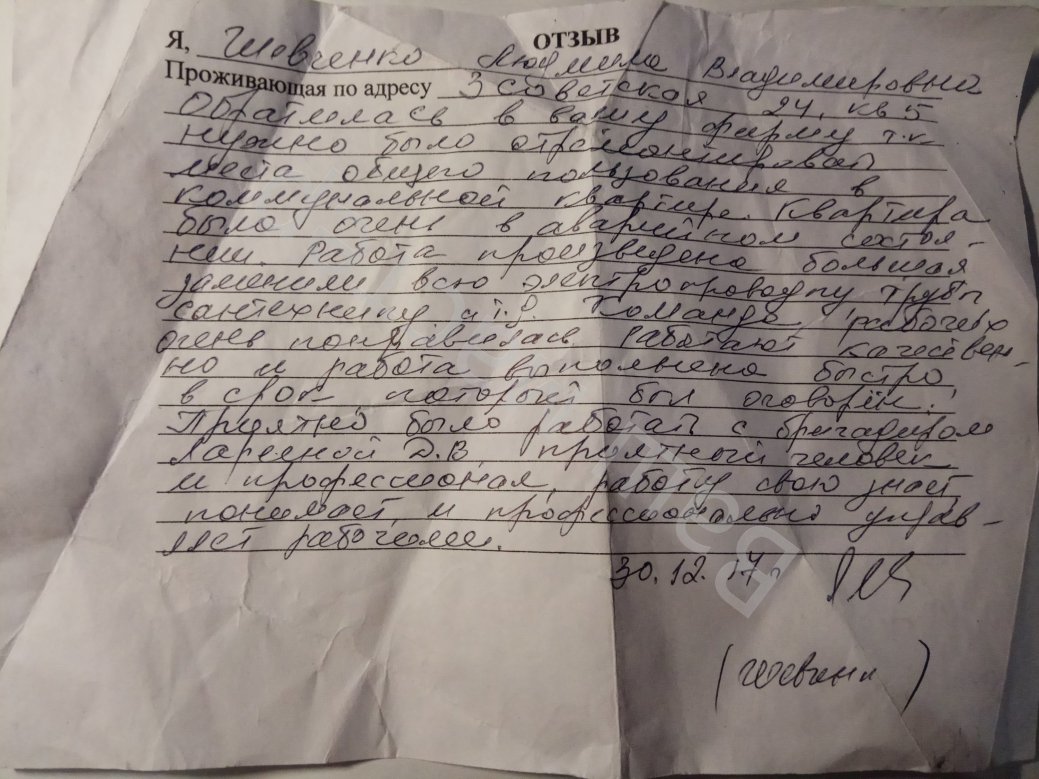 ОТЗЫВ
Я, Шевченко Людмила Владимировна
Проживающая по адресу 3 Советская 24, кв 5
Обратилась в вашу фирму т.к
нужно было отремонтировать
места общего пользования в
коммунальной квартире. Квартира
была очень в аварийном состоя-
нии. Работа произведена большая
заменили всю электропроводку трубы
сантехнику и т.д. Команда рабочих
очень понравилась. Работают качествен-
но и работа выполнена быстро,
в срок который был оговорен.
Приятно было работать с бригадиром
Д.В. приятный человек
и профессионал, работу свою знает,
понимает и профессионально управ-
ляет рабочими.
30.12.17г